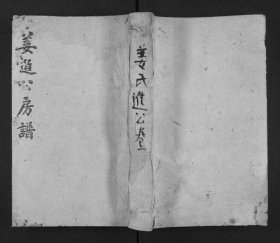 姜氏進公卷
姜進公房譜